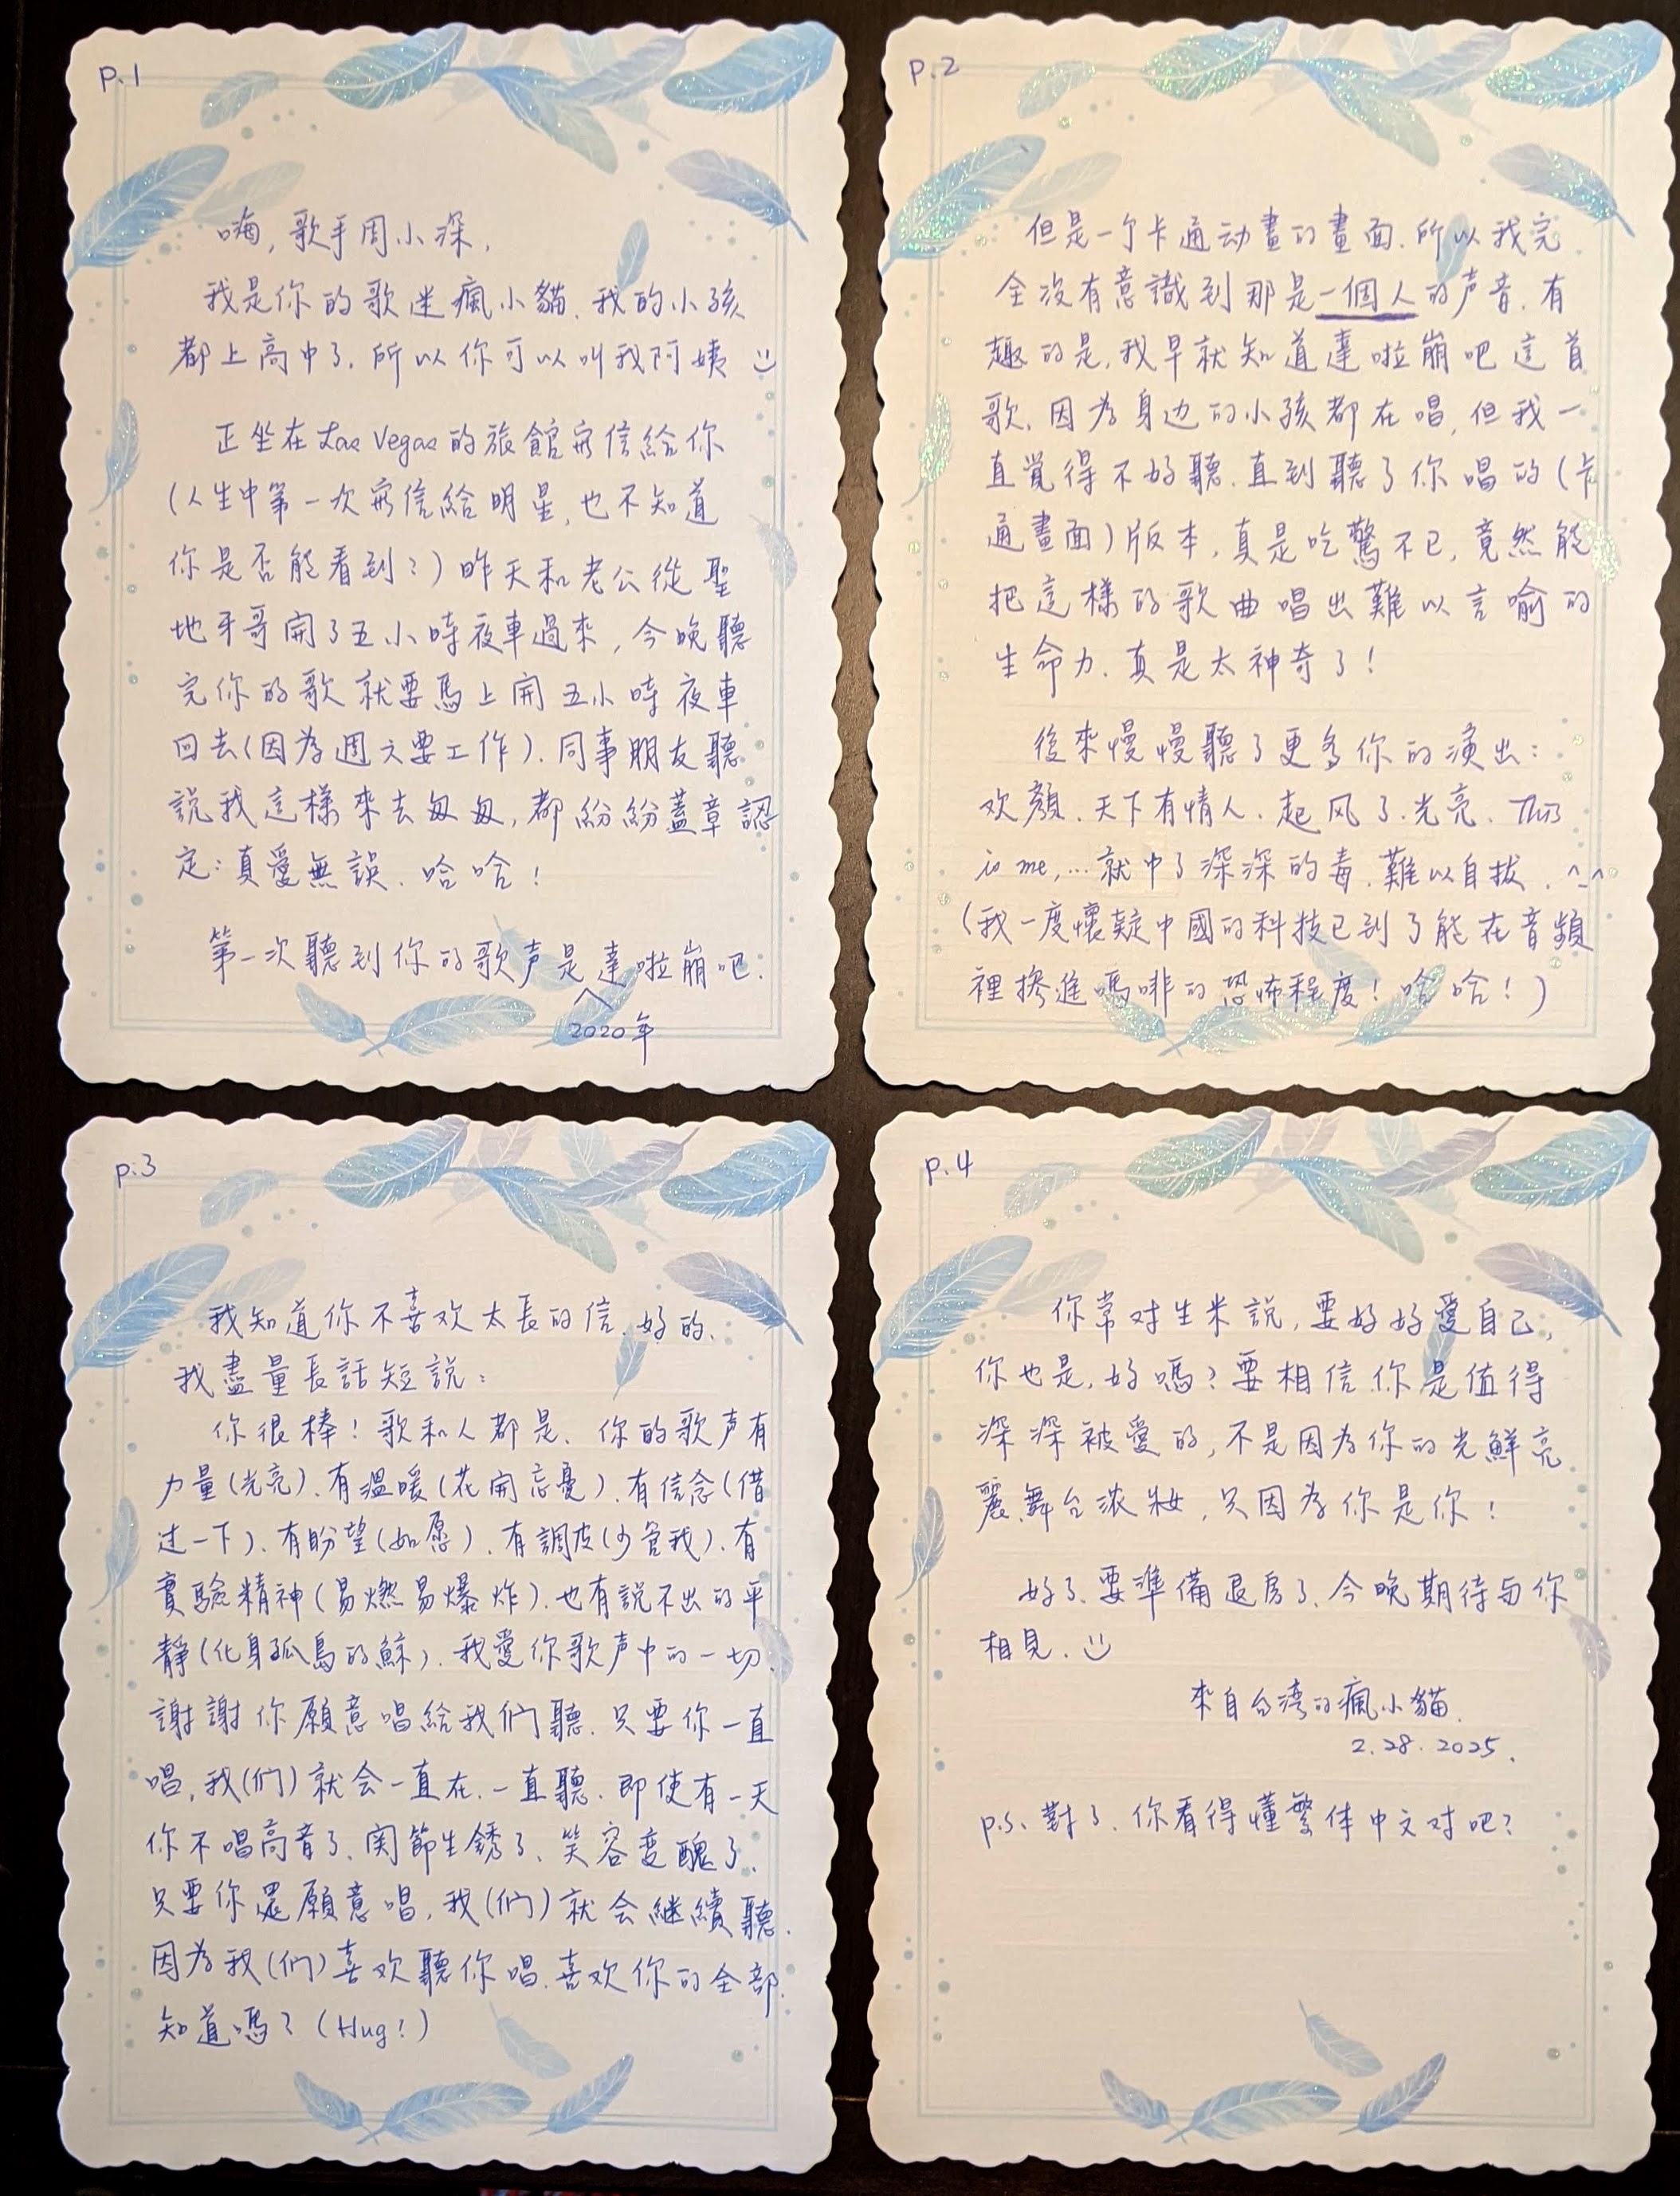 p.1
嗨,歌手周小深,
我是你的歌迷瘋小貓.我的小孩
都上高中了.所以你可以叫我阿姨
正坐在Las Vegas的旅館寫信給你
(人生中第一次寫信給明星,也不知道
你是否能看到?)昨天和老公從聖
地牙哥開了五小時夜車過來,今晚聽
完你的歌就要馬上開五小時夜車
回去(因為週六要工作).同事朋友聽
說我這樣來去匆匆,都紛紛蓋章認
定:真愛無誤.哈哈!
第一次聽到你的歌声是達啦崩吧.
2020年
p.2
但是一个卡通动畫的畫面.所以我完
全沒有意識到那是一個人的声音.有
趣的是,我早就知道達啦崩吧這首
歌.因為身边的小孩都在唱,但我一
直覺得不好聽.直到聽了你唱的(卡
通畫面)版本,真是吃驚不已,竟然能
把這樣的歌曲唱出難以言喻的
生命力.真是太神奇了!
後來慢慢聽了更多你的演出:
欢顏.天下有情人.起风了.光亮.This
is me,...就中了深深的毒.難以自拔.^_^
(我一度懷疑中國的科技已到了能在音頻
裡摻進嗎啡的恐怖程度!哈哈!)
p.3
我知道你不喜欢太長的信.好的.
我盡量長話短說:
你很棒!歌和人都是.你的歌声有
力量(光亮).有溫暖(花開忘憂).有信念(借
过一下).有盼望(如愿).有調皮(少管我).有
實驗精神(易燃易爆炸).也有說不出的平
靜(化身孤島的鯨).我愛你歌声中的一切.
謝謝你願意唱給我们聽.只要你一直
唱,我(们)就会一直在.一直聽.即使有一天
你不唱高音了.関節生銹了.笑容变醜了.
只要你還願意唱,我(们)就会継續聽.
因為我(们)喜欢聽你唱.喜欢你的全部.
知道嗎?(Hug!)
p.4
你常对生米說,要好好愛自己,
你也是,好嗎?要相信你是值得
深深被愛的,不是因為你的光鮮亮
麗.舞台浓妝,只因為你是你!
好了.要準備退房了.今晚期待与你
相見.
來自台湾的瘋小貓.
2.28.2025.
p.s.對了.你看得懂繁体中文对吧?